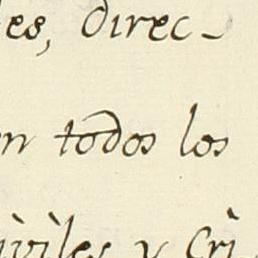 les, direc-
en todos los
iviles y Cri